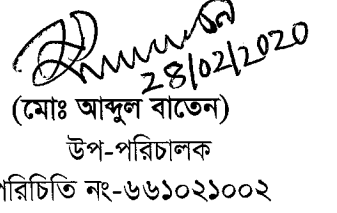 28/02/2020
(মোঃ আব্দুল বাতেন)
উপ-পরিচালক
পরিচিতি নং-৬৬১০২১০০২